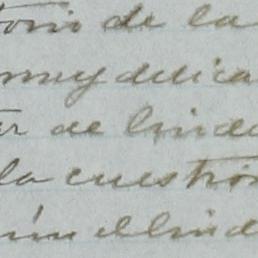 torio de la
muy delica
ar de linde
la cuestión
ún el lind